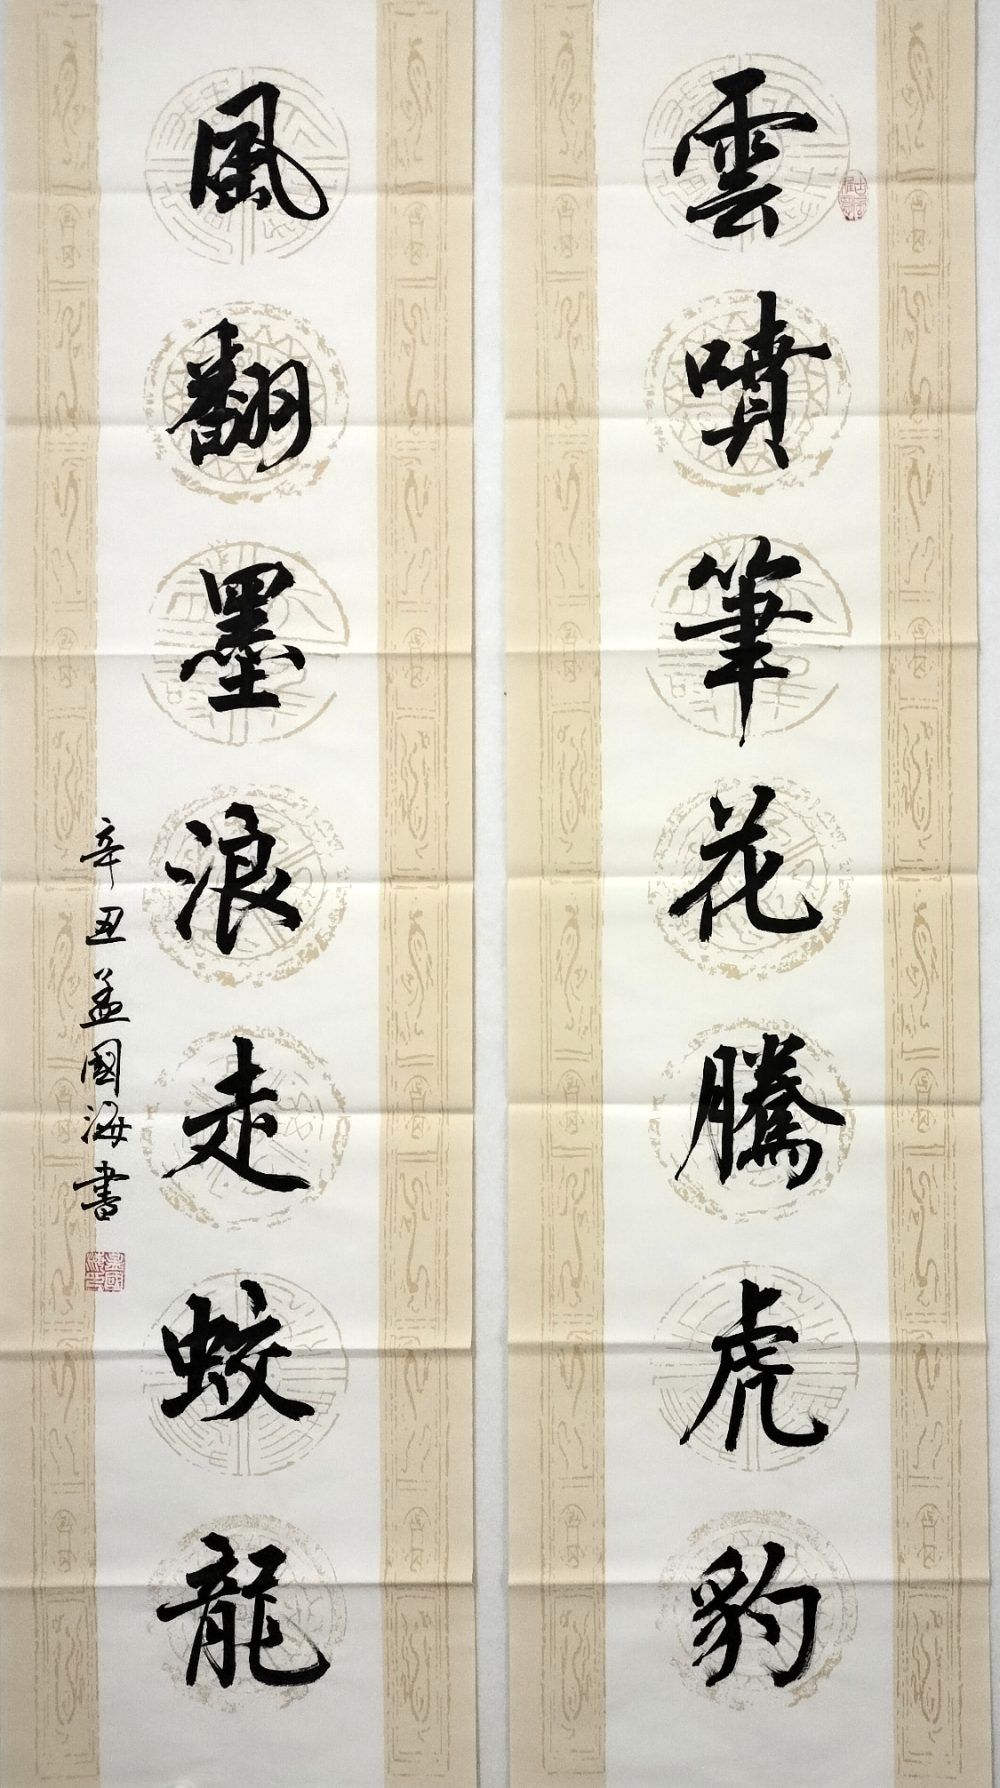 雲噴筆花騰虎豹
風翻墨浪走蛟龍
辛丑孟國海書